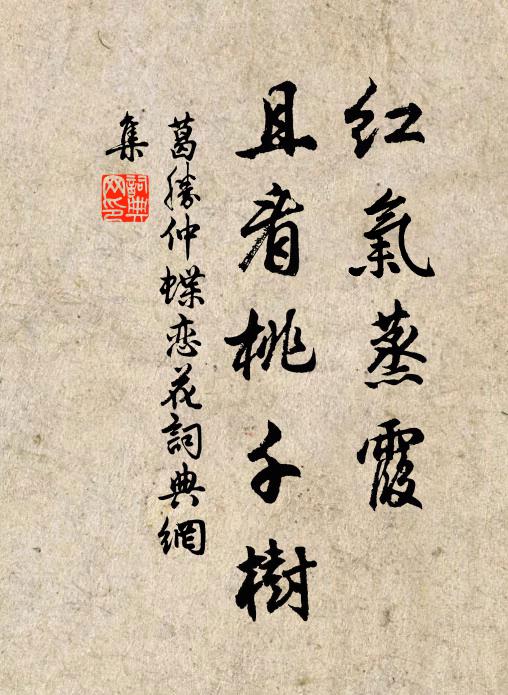 紅氣蒸霞
且看桃千樹
葛勝仲蝶恋花詞典網
集
詞典
网印